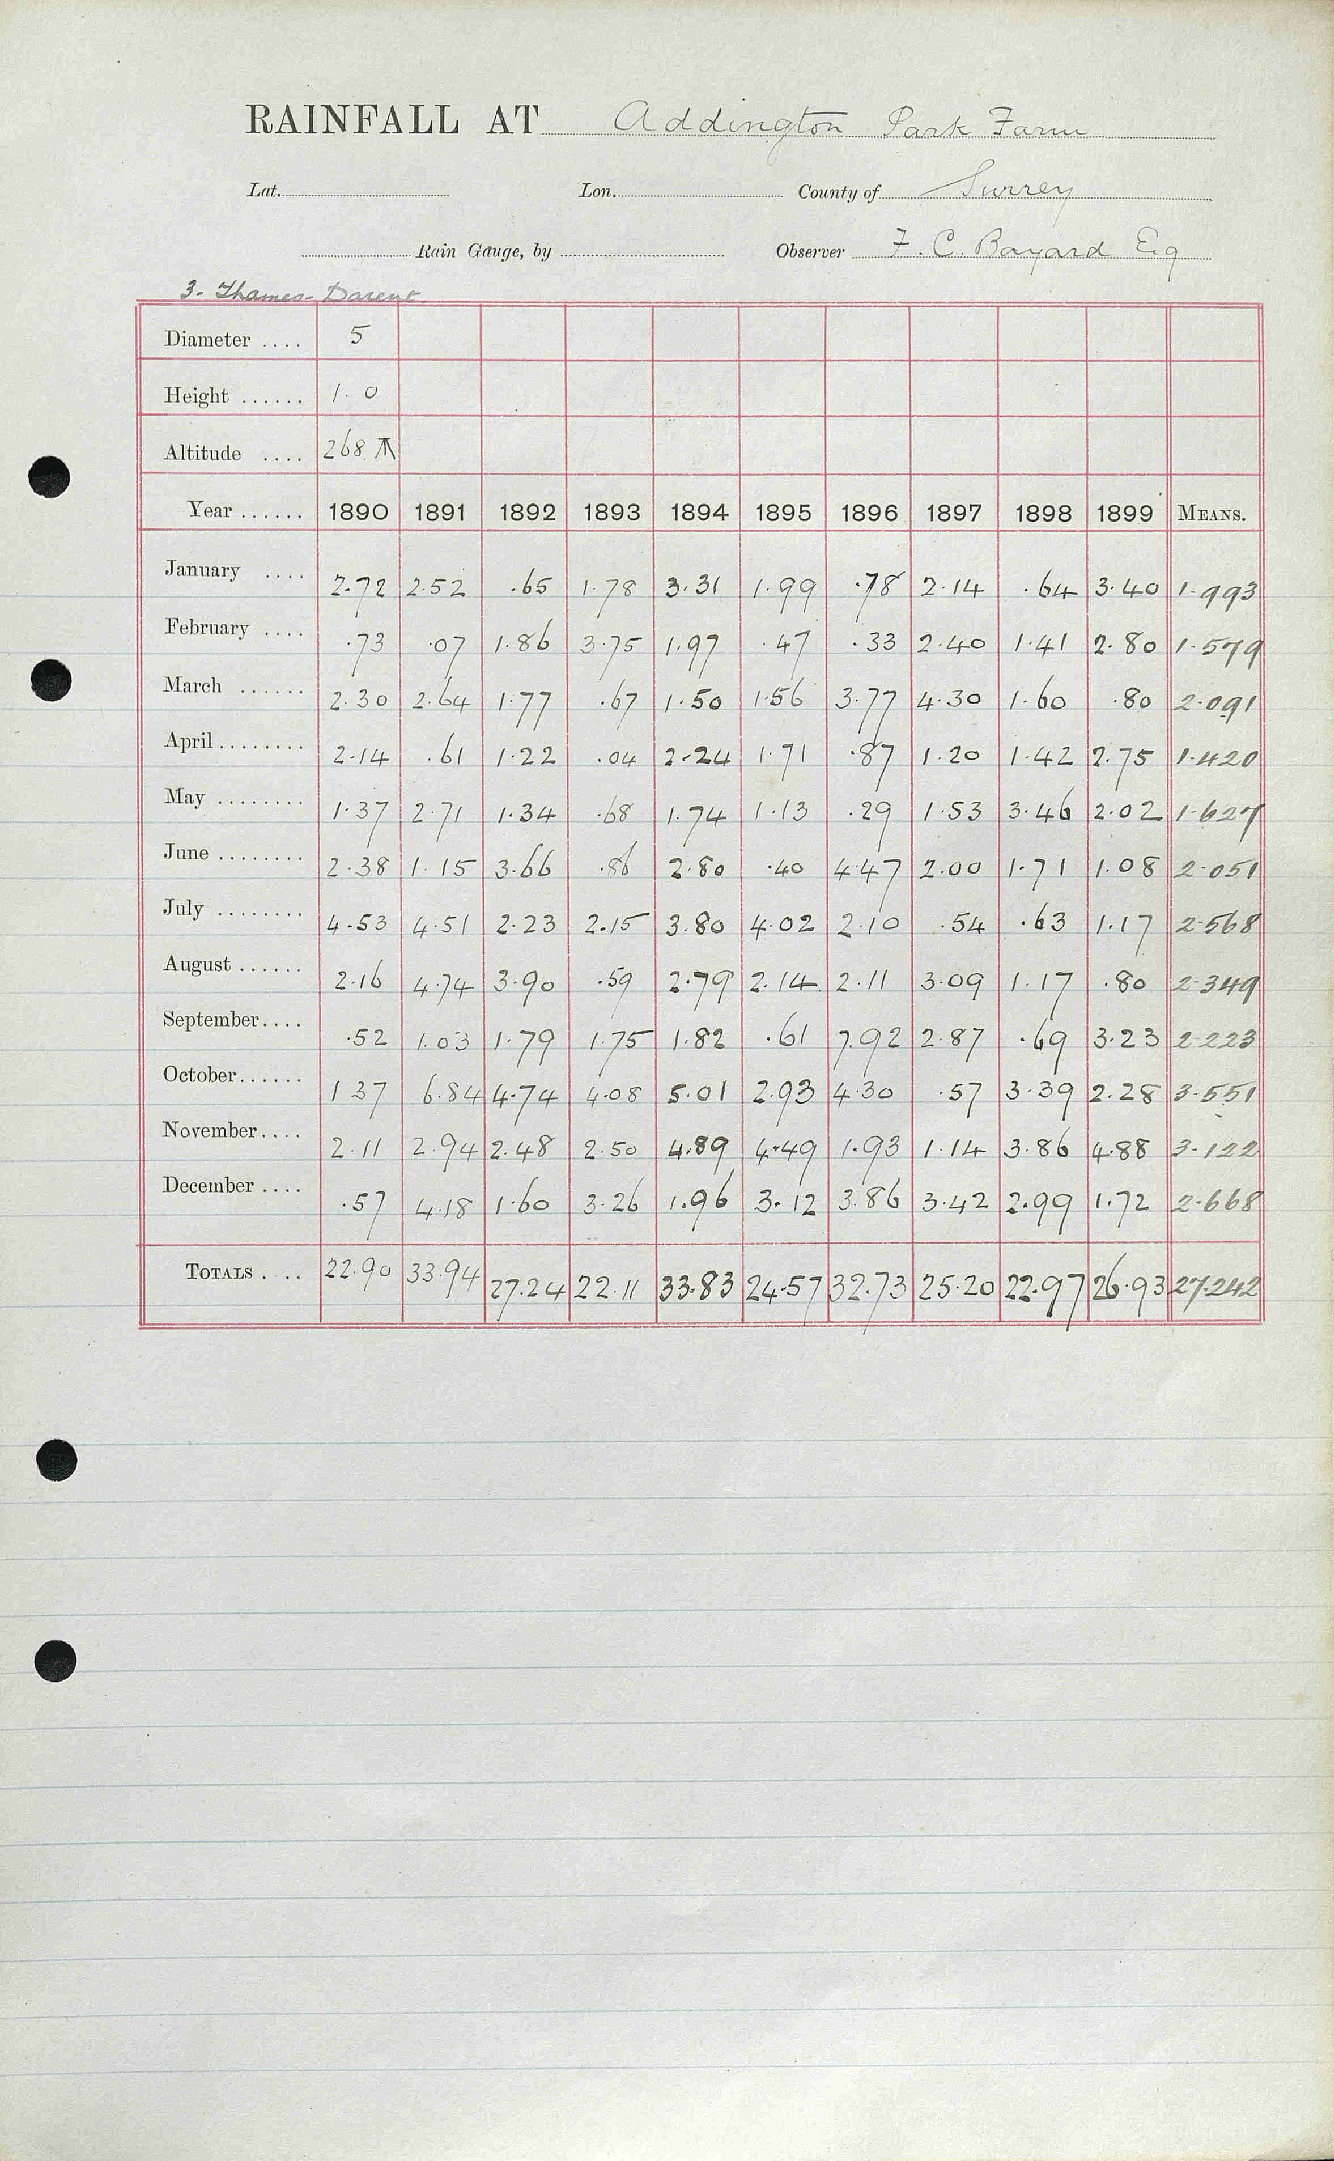 RAINFALL AT Addington Park Farm
Lat. Lon. County of Surrey
Rain Gauge, by Observer F. C. Bayard Esq
3. Thames-Darent
Diameter .... 5
Height ...... 1. 0
Altitude .... 268
Year ...... 1890 1891 1892 1893 1894 1895 1896 1897 1898 1899 MEANS.
January .... 2.72 2.52 .65 1.78 3.31 1.99 .78 2.14 .64 3.40 1.993
February .... .73 .07 1.86 3.75 1.97 .47 .33 2.40 1.41 2.80 1.579
March ...... 2.30 2.64 1.77 .67 1.50 1.56 3.77 4.30 1.60 .80 2.091
April ........ 2.14 .61 1.22 .04 2.24 1.71 .87 1.20 1.42 2.75 1.420
May ........ 1.37 2.71 1.34 .68 1.74 1.13 .29 1.53 3.46 2.02 1.627
June ........ 2.38 1.15 3.66 .86 2.80 .40 4.47 2.00 1.71 1.08 2.051
July ........ 4.53 4.51 2.23 2.15 3.80 4.02 2.10 .54 .63 1.17 2.568
August ...... 2.16 4.74 3.90 .59 2.79 2.14 2.11 3.09 1.17 .80 2.349
September .... .52 1.03 1.79 1.75 1.82 .61 7.92 2.87 .69 3.23 2.223
October ...... 1 37 6.84 4.74 4.08 5.01 2.93 4.30 .57 3.39 2.28 3.551
November .... 2.11 2.94 2.48 2.50 4.89 4.49 1.93 1.14 3.86 4.88 3.122
December .... .57 4.18 1.60 3.26 1.96 3.12 3.86 3.42 2.99 1.72 2.668
TOTALS .... 22.90 33.94 27.24 22.11 33.83 24.57 32.73 25.20 22.97 26.93 27.242